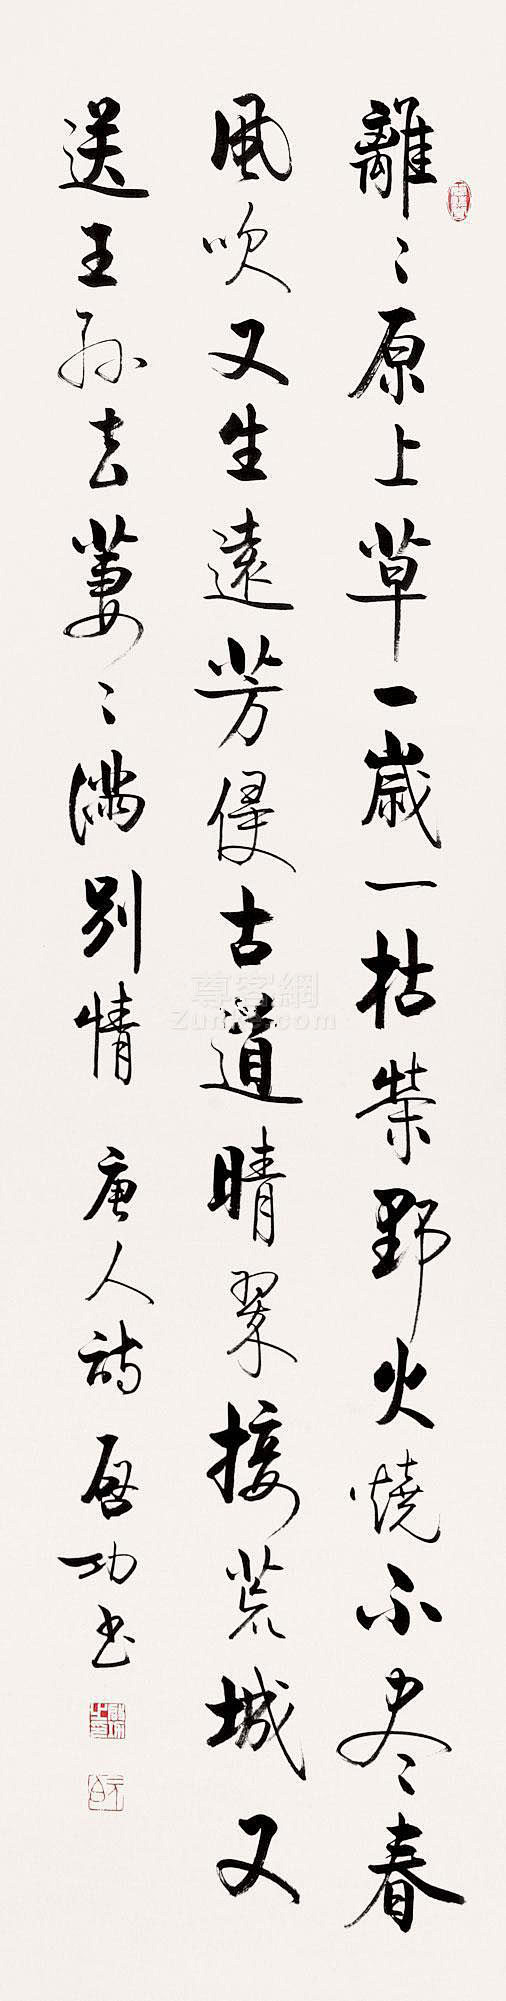 離〻原上草一歲一枯榮野火燒不尽春
風吹又生遠芳侵古道晴翠接荒城又
送王孫去萋〻滿別情 唐人詩 啓功書
尊客網